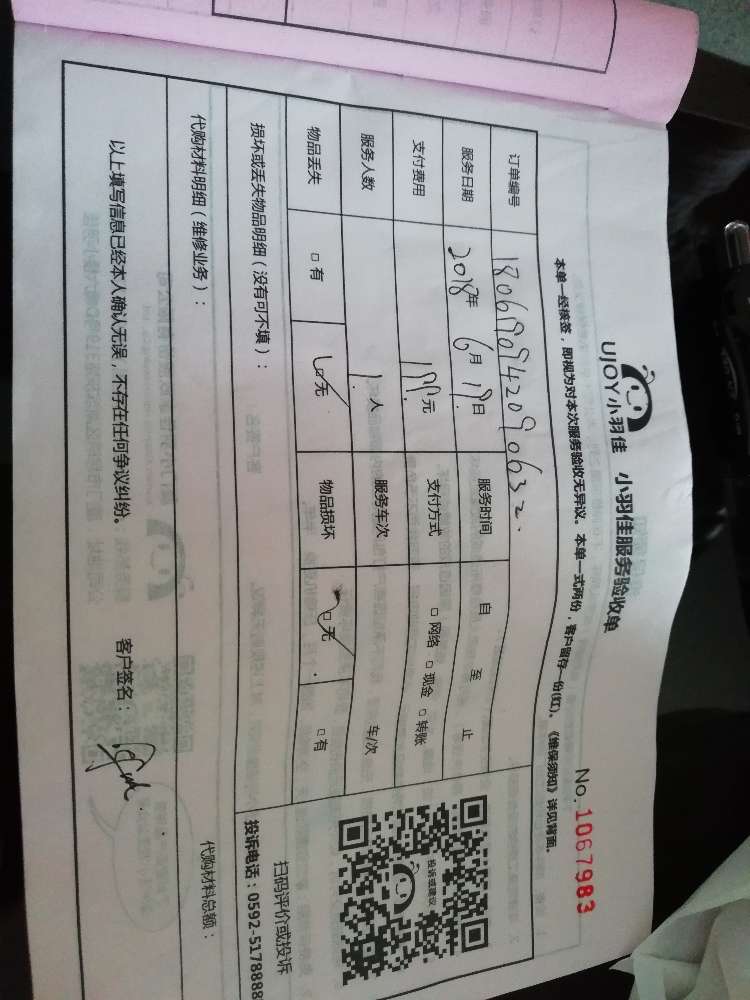 UJOY小羽佳 小羽佳服务验收单
No.1067983
本单一经核签，即视为对本次服务验收无异议。本单一式两份，客户留存一份(红)。《维保须知》详见背面。
订单编号 1806190942090632.
服务日期 2018年 6月19日 服务时间 自 至 止
支付费用 199元 支付方式 □网络 □现金 □转账
服务人数 1人 服务车次 车/次
物品丢失 □有 □无 物品损坏 □无 □有
损坏或丢失物品明细（没有可不填）：
扫码评价或投诉
投诉电话：0592-5178888
投诉或建议
代购材料明细（维修业务）：
代购材料总额：
以上填写信息已经本人确认无误，不存在任何争议纠纷。 客户签名：